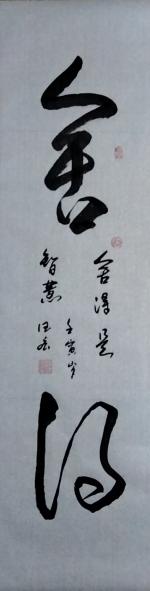 舍得
舍得是
智慧
壬寅岁